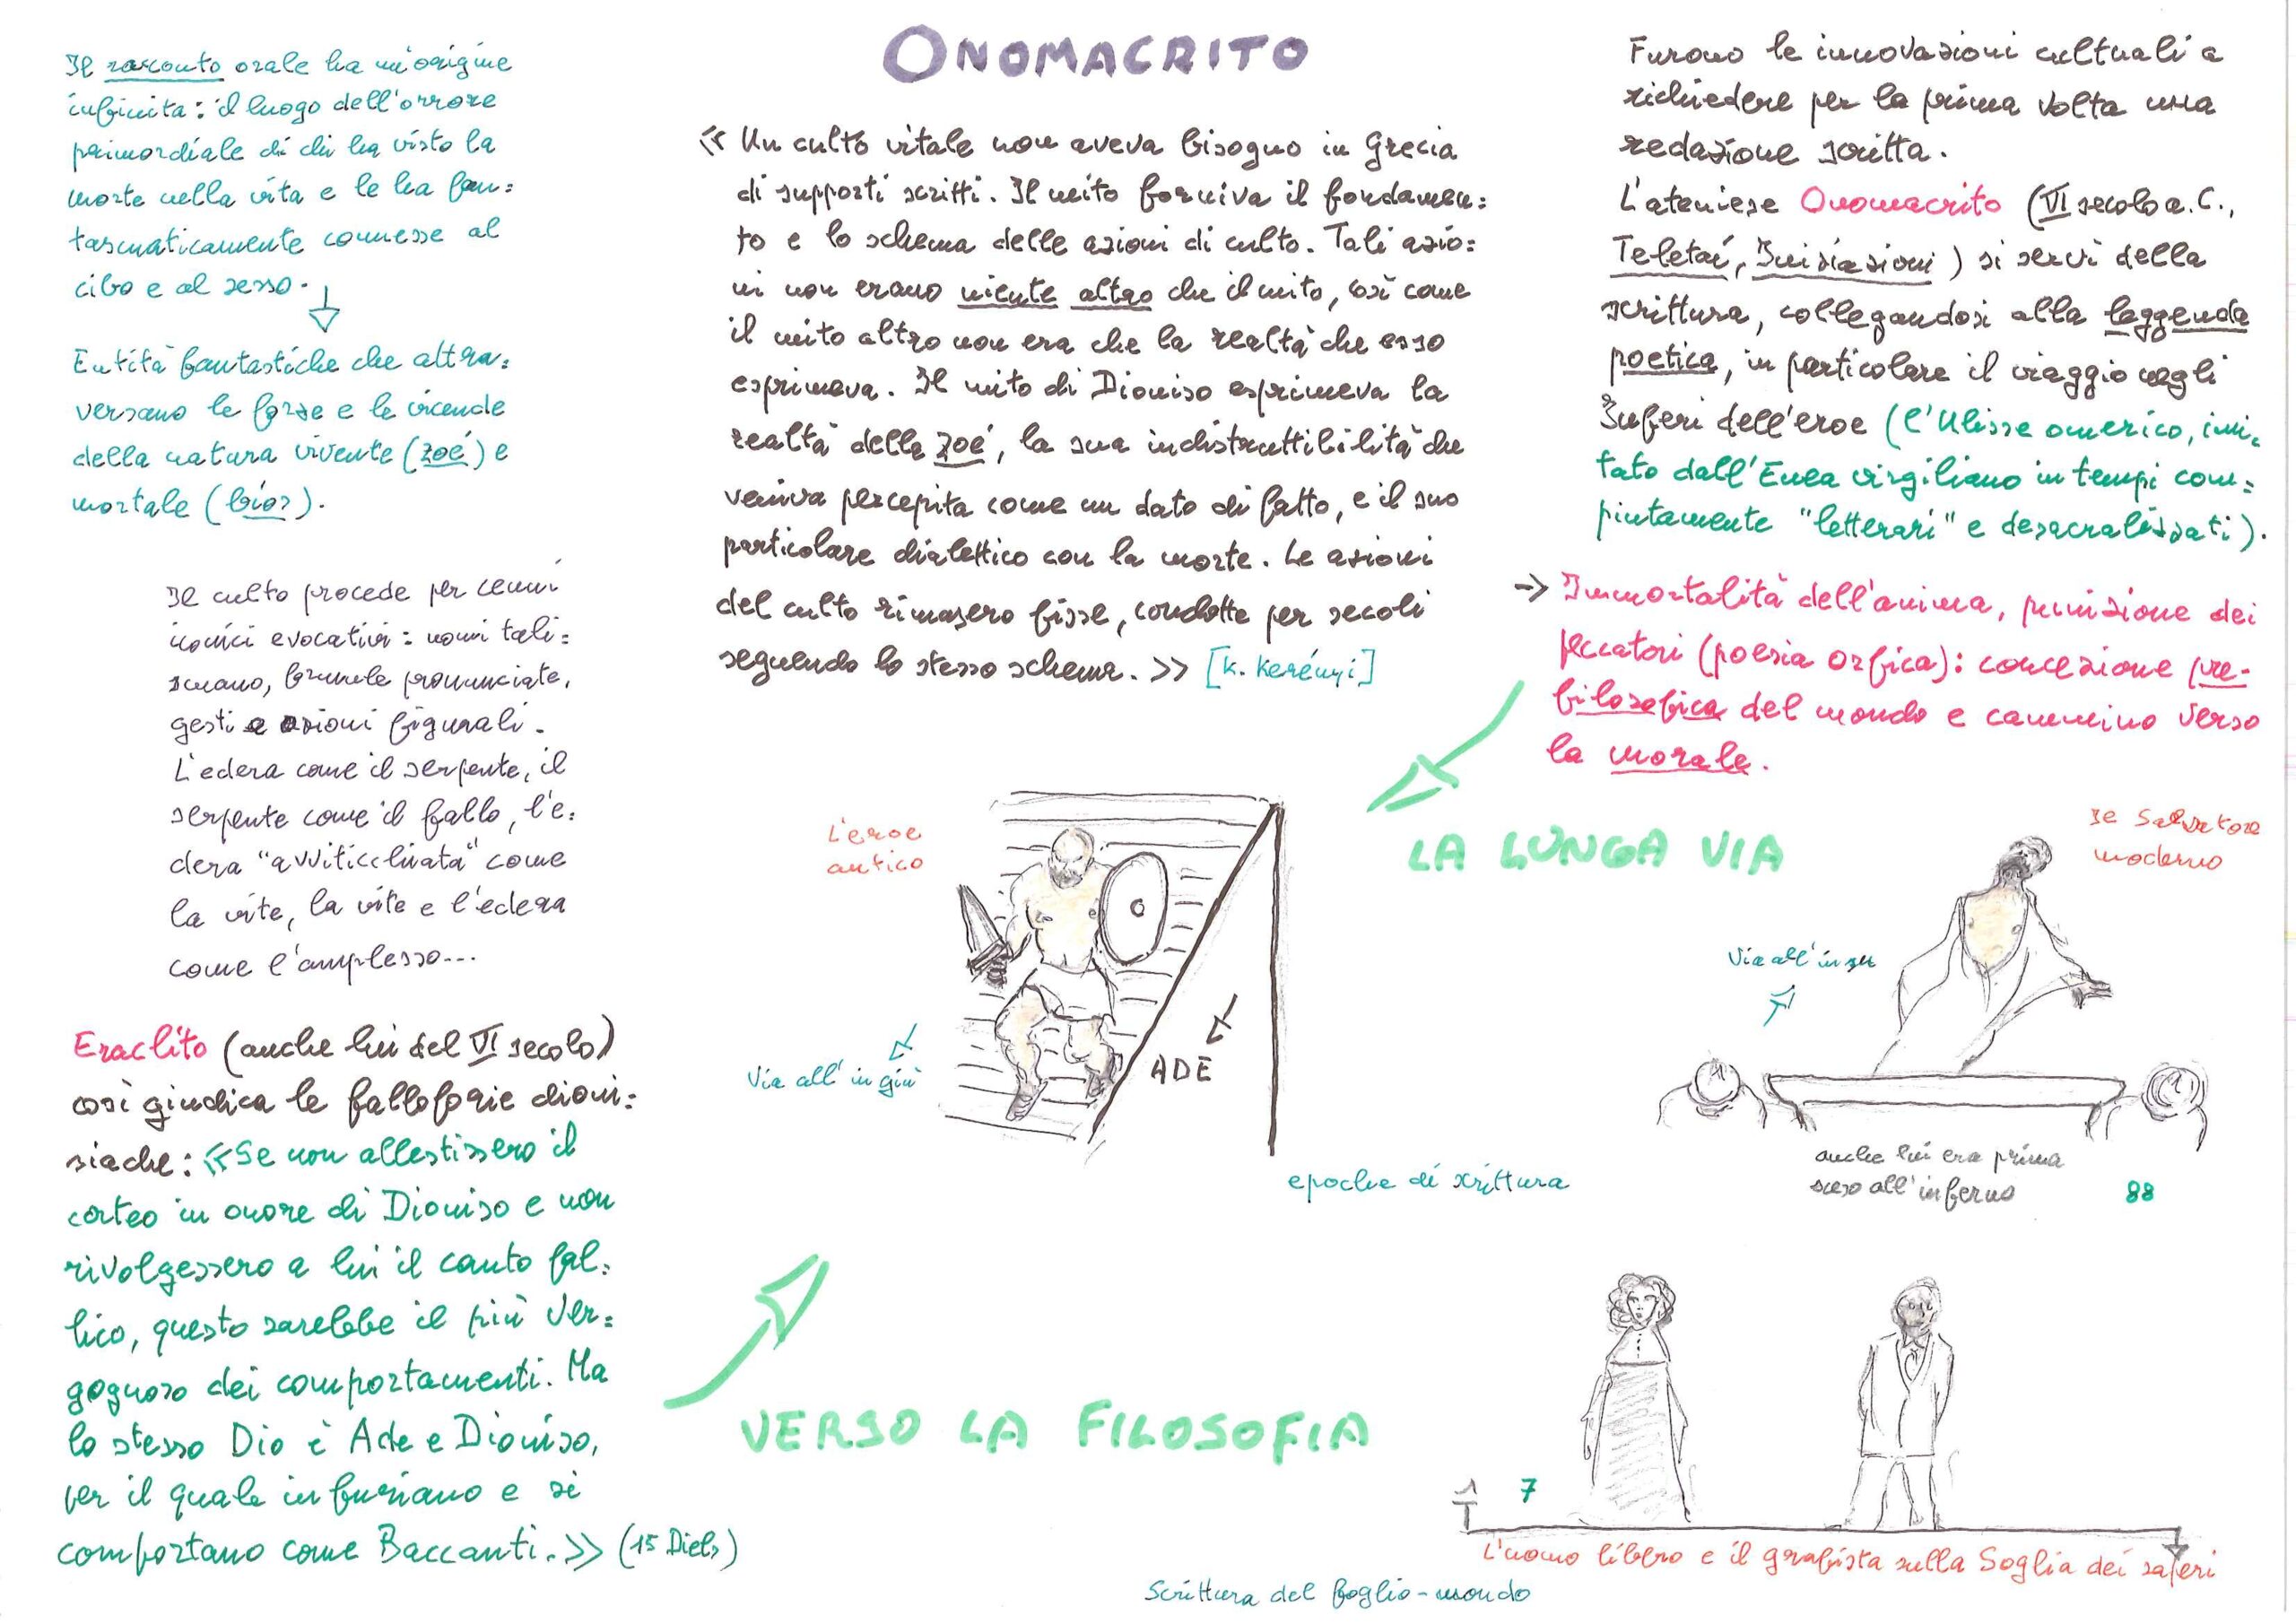 ONOMACRITO
Il racconto orale ha un'origine
infinita: il luogo dell'orrore
primordiale di chi ha visto la
morte nella vita e le ha fan=
tasmaticamente connesse al
cibo e al sesso.
Entità fantastiche che attra=
versano le forze e le vicende
della natura vivente (zoé) e
mortale (bíos).
Il culto procede per cenni
iconici evocativi: nomi tali=
smano, formule pronunciate,
gesti e azioni figurali.
L'edera come il serpente, il
serpente come il fallo, l'e=
dera "avviticchiata" come
la vite, la vite e l'edera
come l'amplesso...
Eraclito (anche lui del VI secolo)
così giudica le falloforie dioni=
siache: «Se non allestissero il
corteo in onore di Dioniso e non
rivolgessero a lui il canto fal=
lico, questo sarebbe il più ver=
gognoso dei comportamenti. Ma
lo stesso Dio è Ade e Dioniso,
per il quale infuriano e si
comportano come Baccanti.» (15 Diels)
« Un culto vitale non aveva bisogno in Grecia
di supporti scritti. Il mito forniva il fondamen=
to e lo schema delle azioni di culto. Tali azio=
ni non erano niente altro che il mito, così come
il mito altro non era che la realtà che esso
esprimeva. Il mito di Dioniso esprimeva la
realtà della zoé, la sua indistruttibilità che
veniva percepita come un dato di fatto, e il suo
particolare dialettico con la morte. Le azioni
del culto rimasero fisse, condotte per secoli
seguendo lo stesso schema. » [K. Kerényi]
Furono le innovazioni cultuali a
richiedere per la prima volta una
redazione scritta.
L'ateniese Onomacrito (VI secolo a.C.,
Teletaí, Iniziazioni) si servì della
scrittura, collegandosi alla leggenda
poetica, in particolare il viaggio negli
Inferi dell'eroe (l'Ulisse omerico, imi=
tato dall'Enea virgiliano in tempi com=
piutamente "letterari" e desacralizzati).
→ Immortalità dell'anima, punizione dei
peccatori (poesia orfica): concezione pre-
filosofica del mondo e cammino verso
la morale.
LA LUNGA VIA
L'eroe
antico
Via all'in giù
ADE
Il Salvatore
moderno
Via all'in su
epoche di scrittura
anche lui era prima
sceso all'inferno
88
VERSO LA FILOSOFIA
7
L'uomo libero e il grafista sulla Soglia dei saperi
Scrittura del foglio-mondo